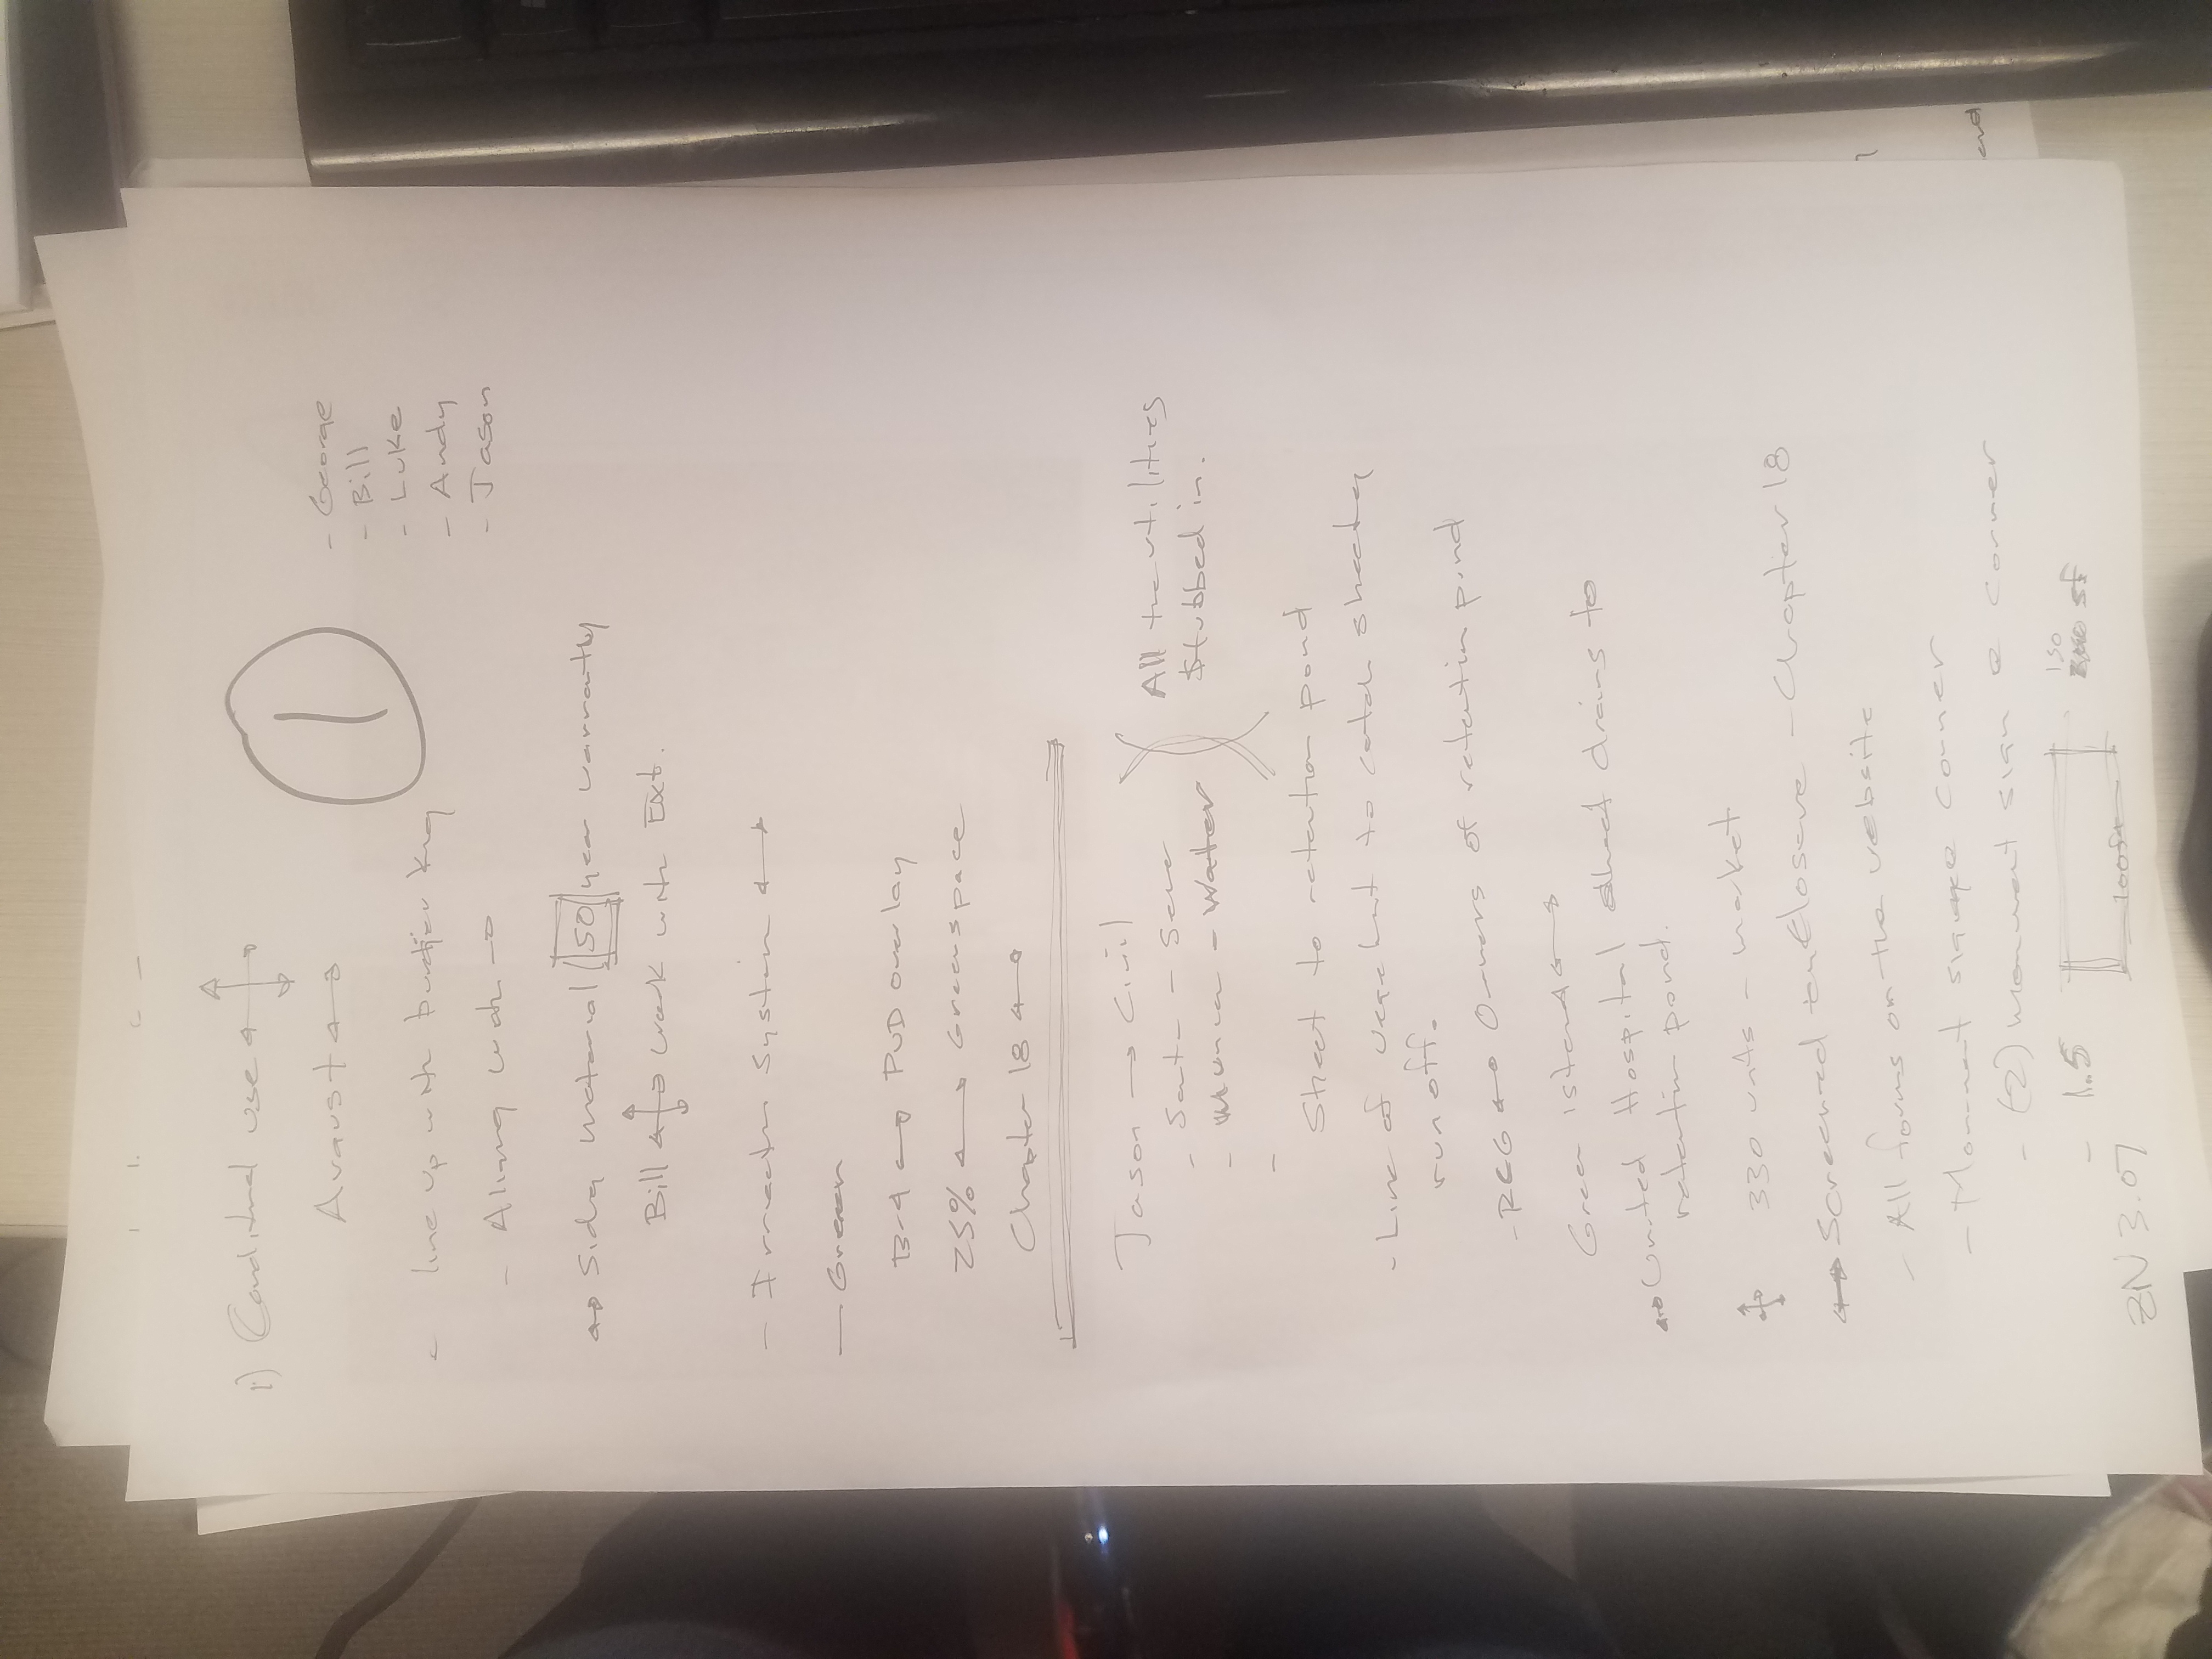 1) Conditional use
1
August
- George
- Bill
- Luke
- Andy
- Jason
- line up with burger king
- Aligning with
Siding material 50 year warranty
Bill work with Ext.
- Irrigation System
- Green
B-4 PUD overlay
25% Greenspace
Chapter 18
Jason → Civil
- - Sewer
- - Water
-
All the utilities
Stubbed in.
Sheet to retention pond
- Line of to catch sheeting
run off.
- Owners of retention pond
Green island
United Hospital sheet drains to
retention pond.
330 units - market
Screened enclosure - Chapter 18
- All forms on the website
- Monument signage corner
- (2) monument sign @ corner
- 1.5
150
sf
100ft
ZN 3.07